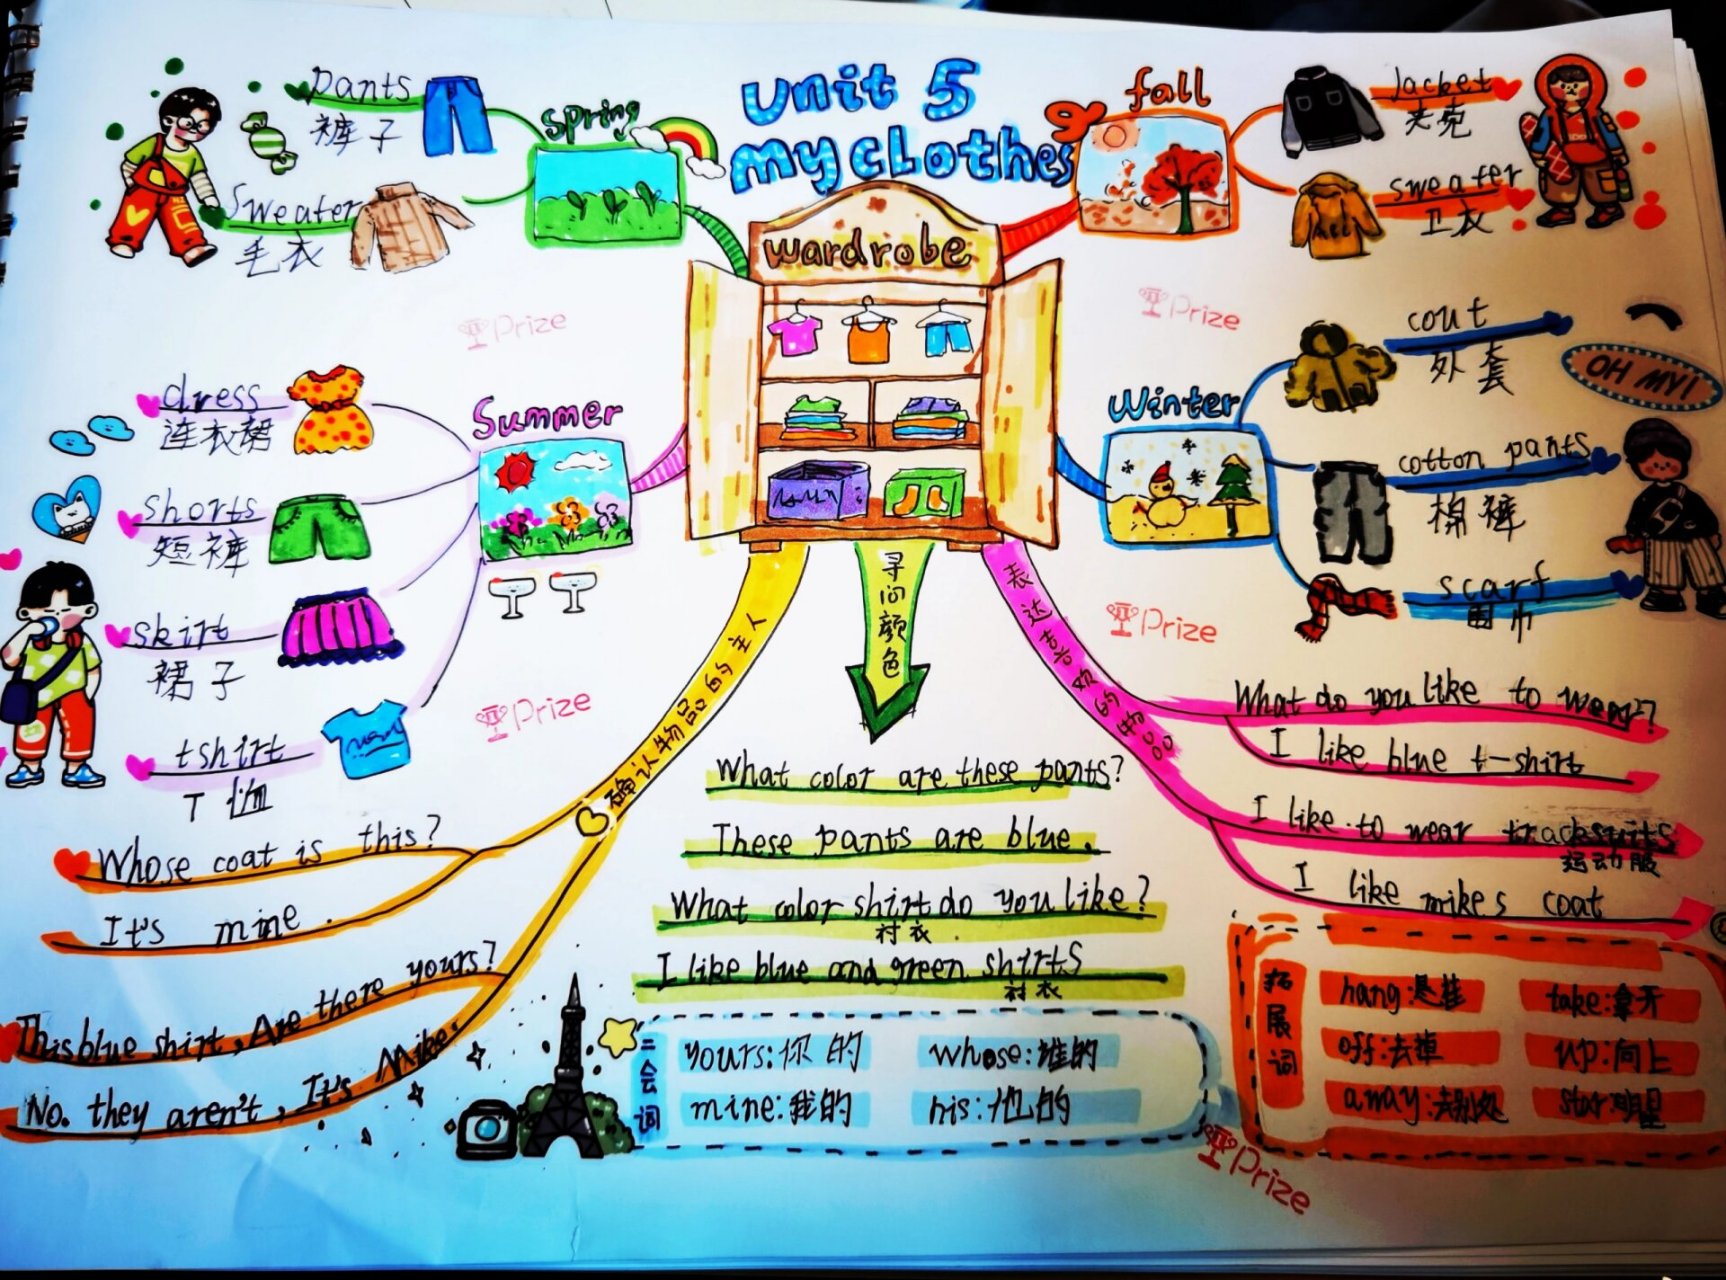 Unit 5
my cLothes
wardrobe
spring
pants
裤子
Sweater
毛衣
Summer
dress
连衣裙
shorts
短裤
skirt
裙子
tshirt
T恤
fall
Jacket
夹克
sweater
卫衣
Winter
cout
外套
cotton pants
棉裤
scarf
围巾
OH MY!
Prize
Prize
Prize
Prize
Prize
确认物品的主人
Whose coat is this?
It's mine.
This blue shirt, Are there yours?
No. they aren't, It's Mike.
寻问颜色
What color are these pants?
These pants are blue.
What color shirt do you like?
衬衣
I like blue and green shirts
衬衣
表达喜欢的物品
What do you like to wear?
I like blue t-shirt
I like to wear tracksuits
运动服
I like mikes coat
二会词
yours:你的 whose:谁的
mine:我的 his:他的
拓展词
hang:悬挂 take:拿开
off:去掉 up:向上
away:去别处 star:明星